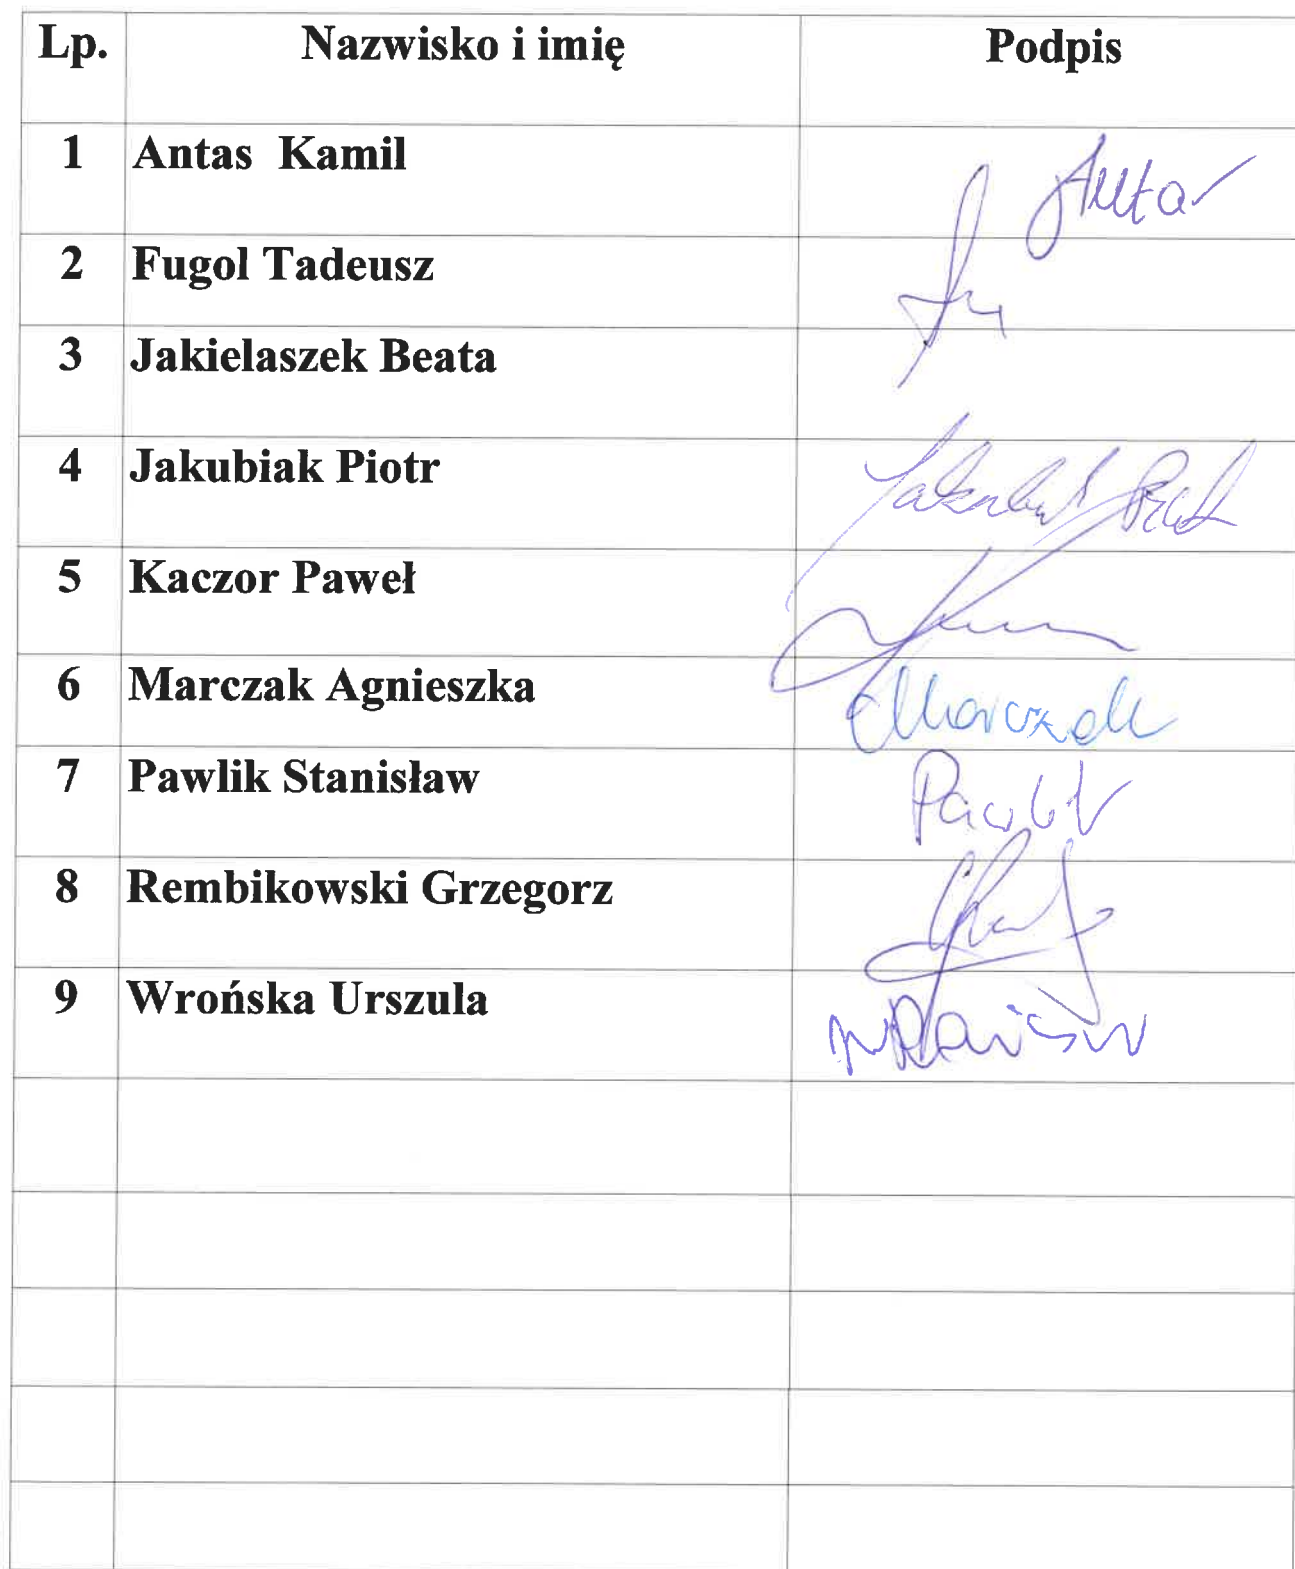 Lp. Nazwisko i imię Podpis
1 Antas Kamil Antas
2 Fugol Tadeusz
3 Jakielaszek Beata
4 Jakubiak Piotr Jakubiak Piotr
5 Kaczor Paweł
6 Marczak Agnieszka Marczak
7 Pawlik Stanisław Pawlik
8 Rembikowski Grzegorz
9 Wrońska Urszula